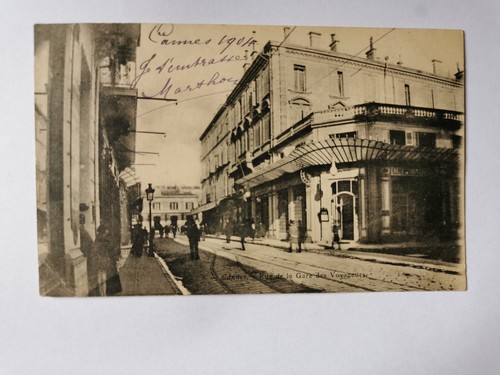 Cannes 1904
Je t'embrasse
Marthe
Cannes. - Rue de la Gare des Voyageurs.